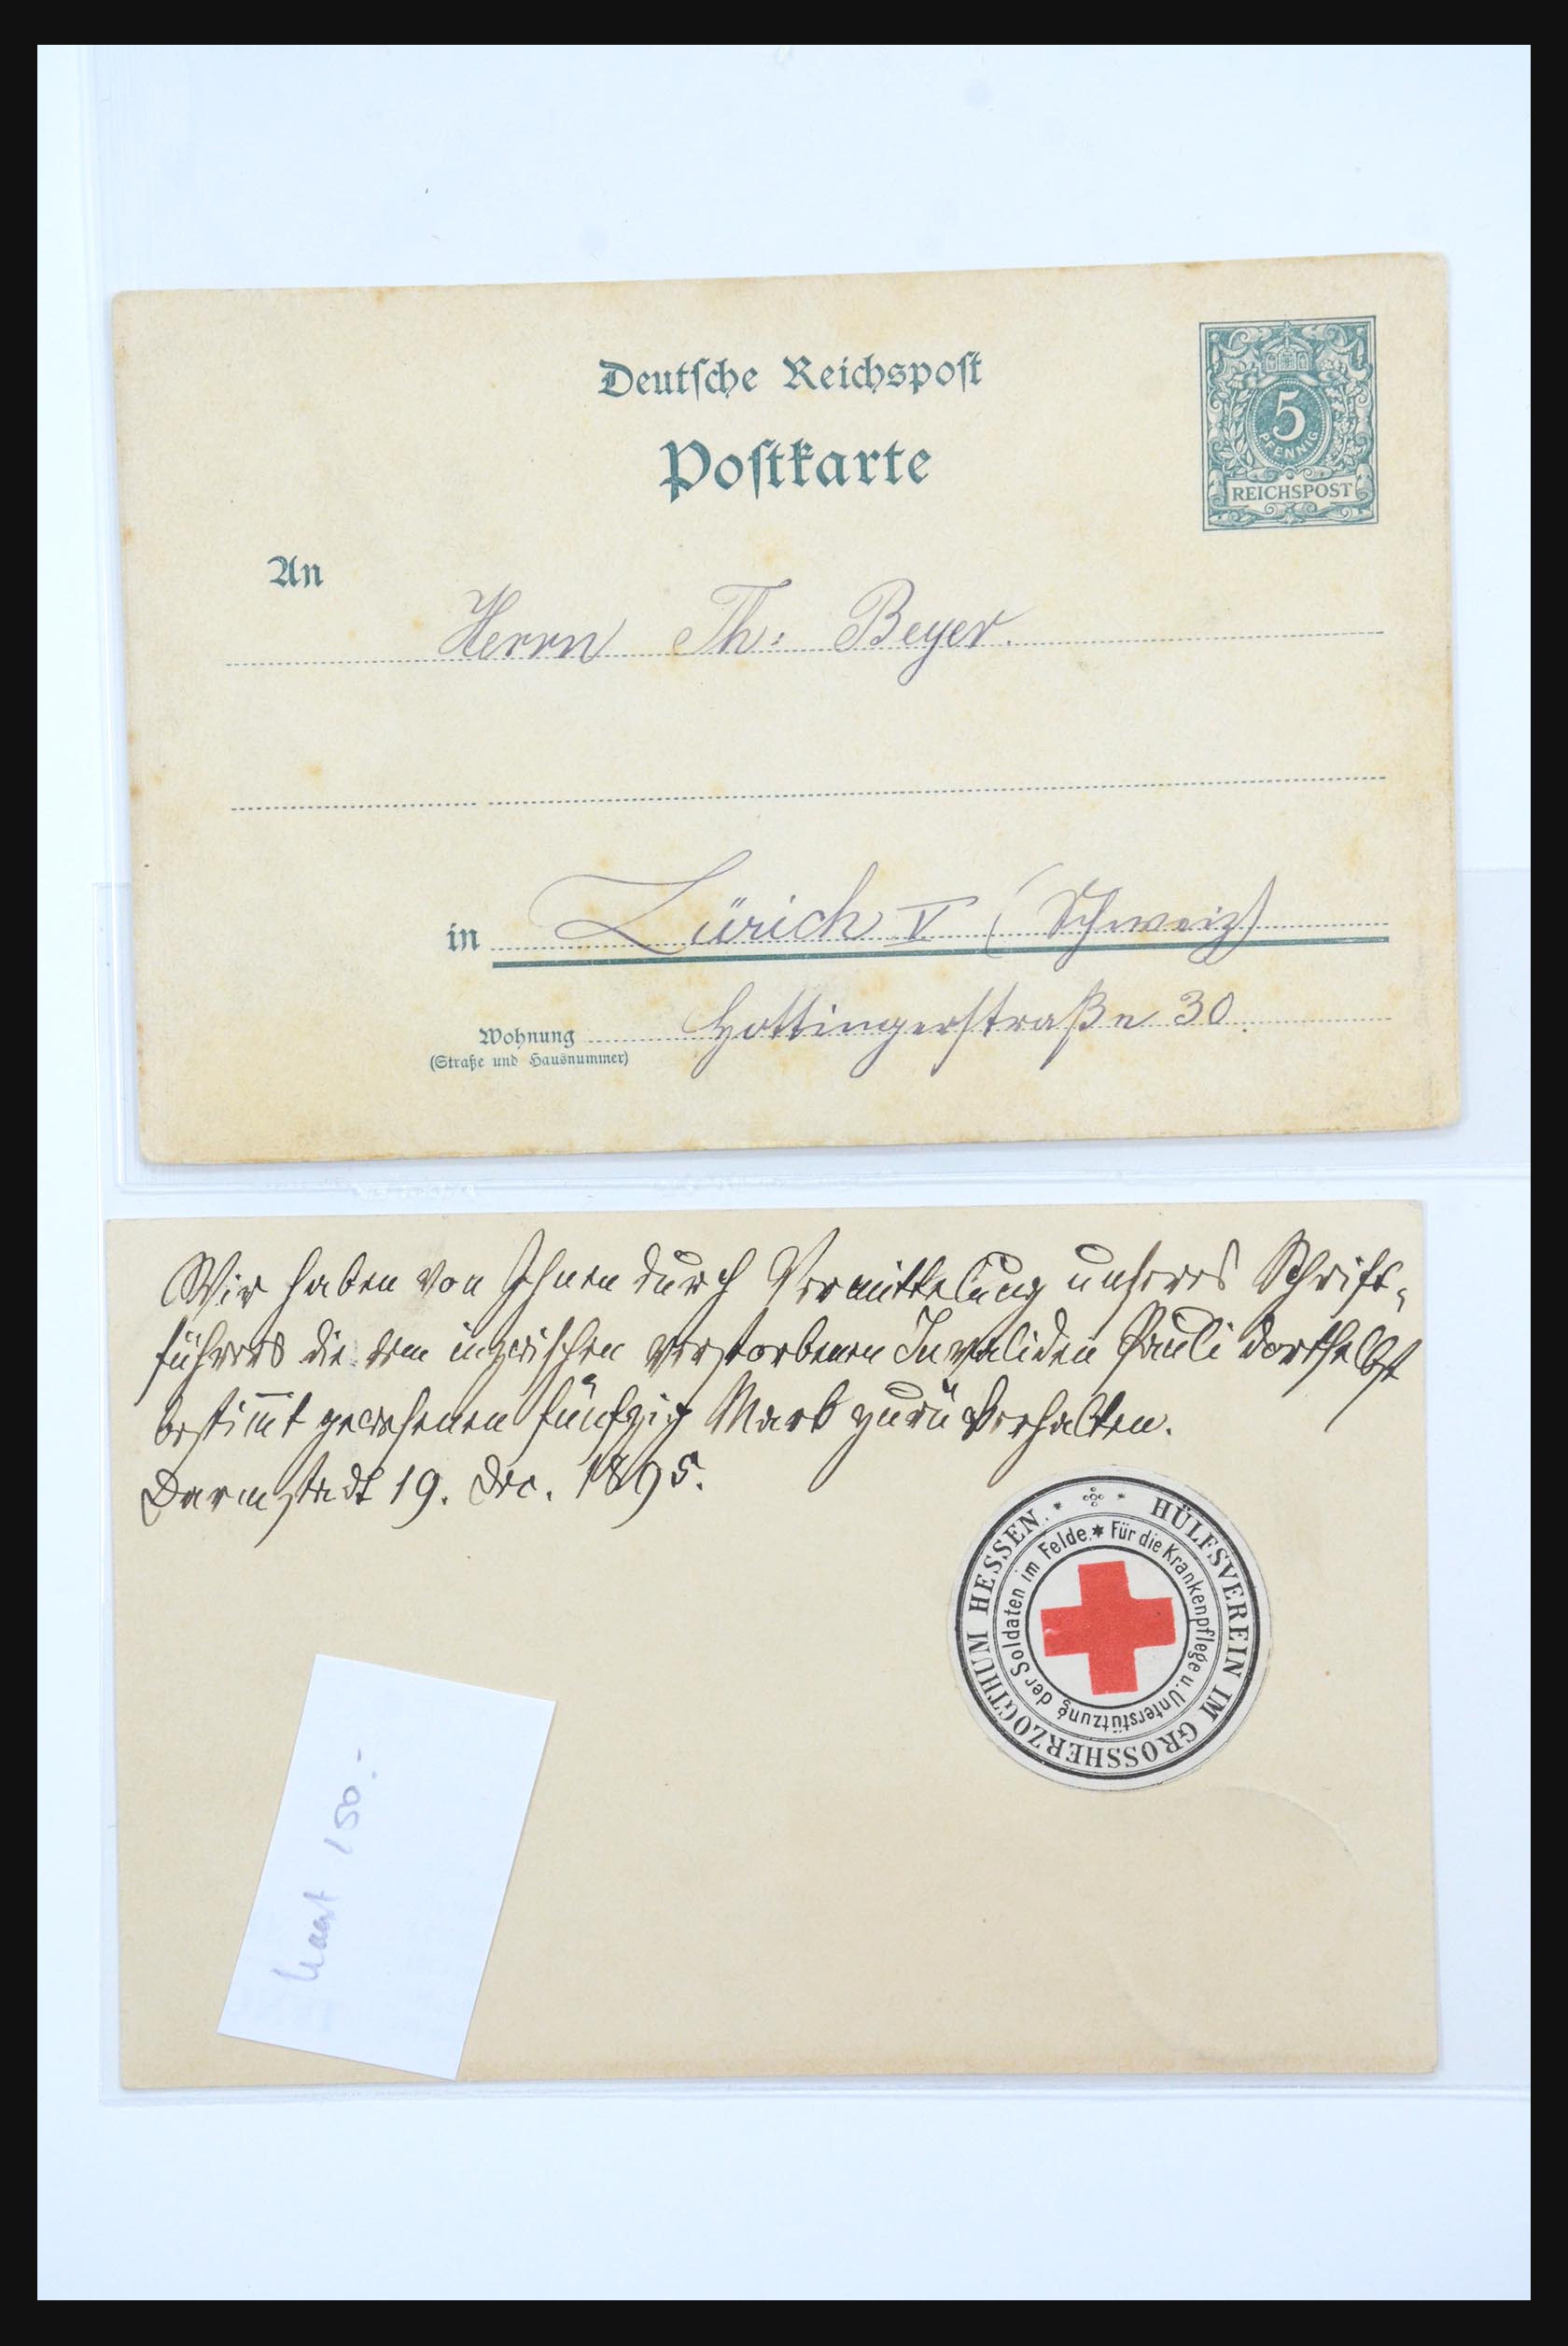 Deutsche Reichspost
Postkarte
5
PFENNIG
REICHSPOST
An
Herrn Th: Beyer.
in Zürich V (Schweiz)
Wohnung Hottingerstraße 30.
(Straße und Hausnummer)
Wir haben von Ihnen durch Vermittelung unseres Schrift-
führers die dem inzwischen verstorbenen Invaliden Pauli dortselbst
bestimmt gewesenen fünfzig Mark zurückerhalten.
Darmstadt 19. Dec. 1895.
HÜLFSVEREIN IM GROSSHERZOGTHUM HESSEN.
Für die Krankenpflege u. Unterstützung der Soldaten im Felde.
150.-